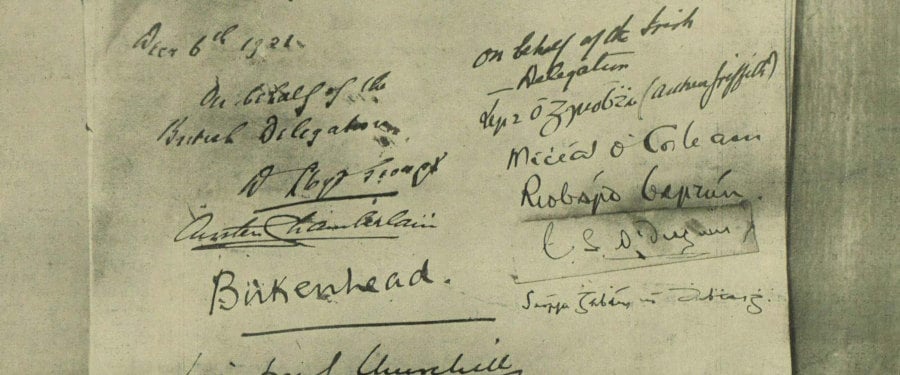 Decr 6th 1921.
On behalf of the
British Delegation
D Lloyd George
Austen Chamberlain
Birkenhead.
S Churchill
On behalf of the Irish
Delegation
Art Ó Gríobhtha (Arthur Griffith)
Mícéál Ó Coileain
Riobárd Bartún.
E S Ó Dugáin